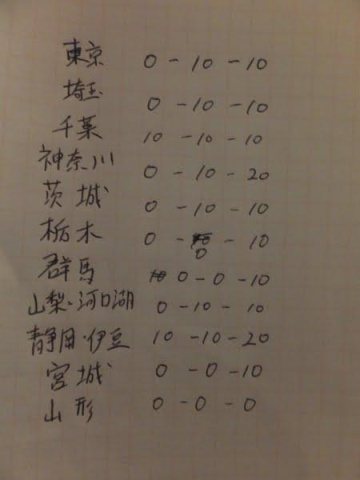 東京 0 - 10 - 10
埼玉 0 - 10 - 10
千葉 10 - 10 - 10
神奈川 0 - 10 - 20
茨城 0 - 10 - 10
栃木 0 - 0 - 10
群馬 0 - 0 - 10
山梨・河口湖 0 - 10 - 10
静岡・伊豆 10 - 10 - 20
宮城 0 - 0 - 10
山形 0 - 0 - 0